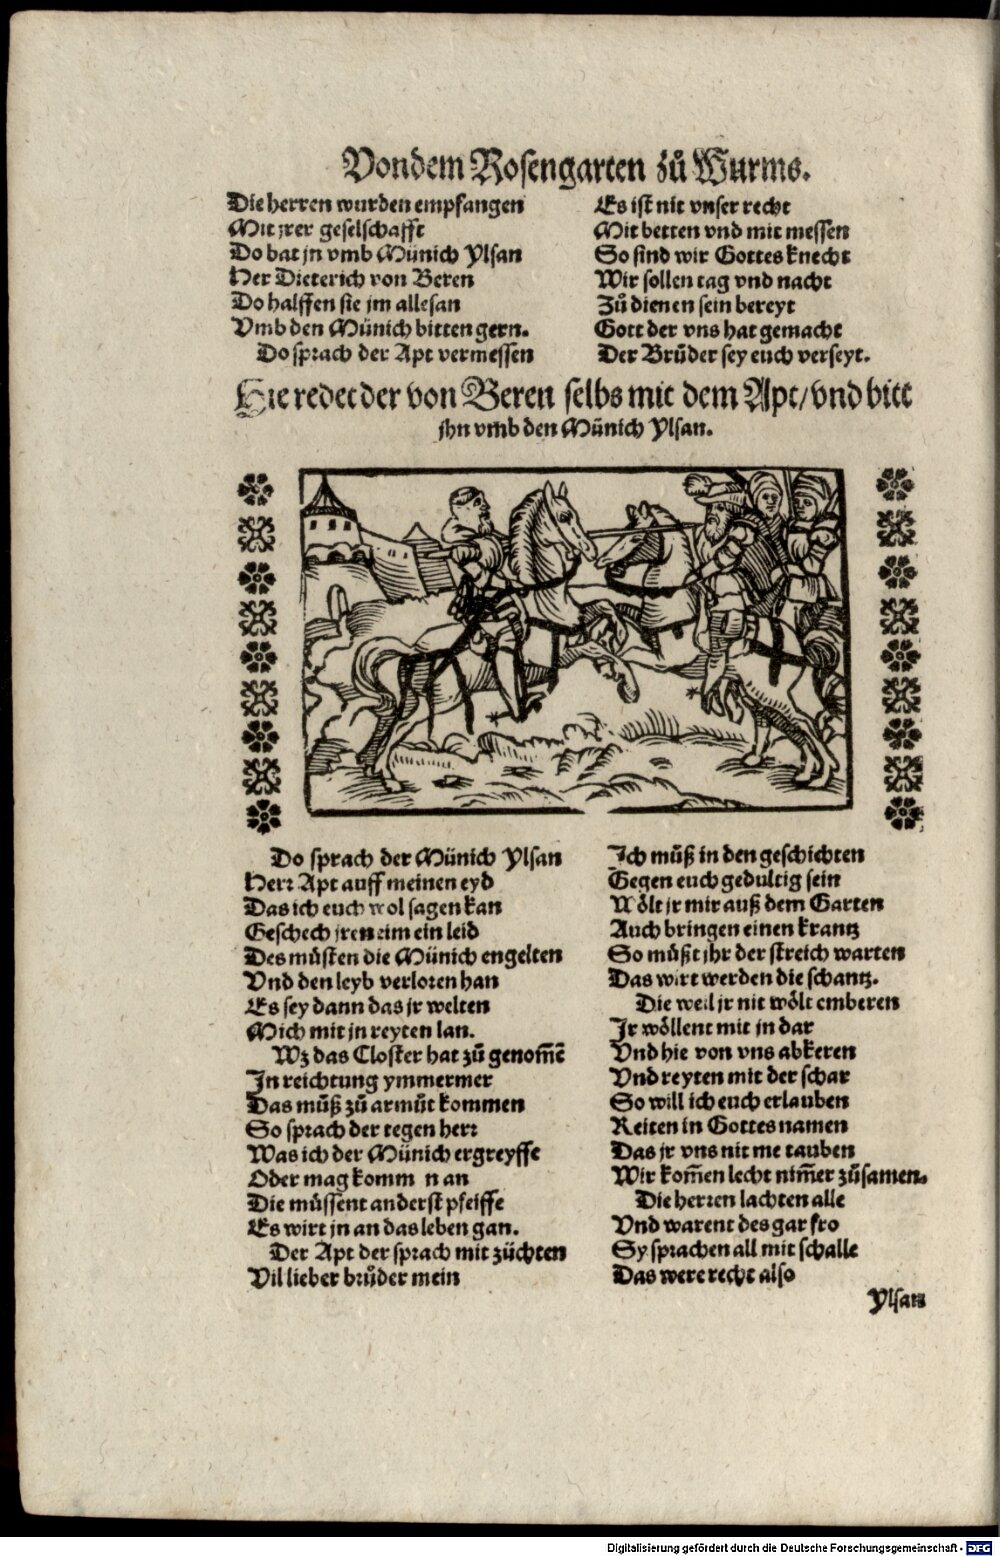 Vondem Rosengarten zů Wurms.
Die herren wurden empfangen
Mit jrer geselschafft
Do bat jn vmb Münich Ylsan
Her Dieterich von Beren
Do halffen sie jm allesan
Vmb den Münich bitten gern.
Do sprach der Apt vermessen
Es ist nit vnser recht
Mit betten vnd mit messen
So sind wir Gottes knecht
Wir sollen tag vnd nacht
Zů dienen sein bereyt
Gott der vns hat gemacht
Der Brůder sey euch verseyt.
Hie redet der von Beren selbs mit dem Apt/ vnd bitt
jhn vmb den Münich Ylsan.
Do sprach der Münich Ylsan
Herr Apt auff meinen eyd
Das ich euch wol sagen kan
Geschech jren eim ein leid
Des müsten die Münich engelten
Vnd den leyb verloren han
Es sey dann das jr welten
Mich mit jn reyten lan.
Wz das Closter hat zů genom̃ẽ
In reichtung ymmermer
Das můß zů armůt kommen
So sprach der tegen herr
Was ich der Münich ergreyffe
Oder mag komm n an
Die müssent anderst pfeiffe
Es wirt jn an das leben gan.
Der Apt der sprach mit züchten
Vil lieber brůder mein
Ich můß in den geschichten
Gegen euch gedultig sein
Wölt jr mir auß dem Garten
Auch bringen einen krantz
So müßt jhr der streich warten
Das wirt werden die schantz.
Die weil jr nit wölt emberen
Jr wöllent mit jn dar
Vnd hie von vns abkeren
Vnd reyten mit der schar
So will ich euch erlauben
Reiten in Gottes namen
Das jr vns nit me tauben
Wir kom̃en lecht nim̃er zůsamen.
Die herren lachten alle
Vnd warent des gar fro
Sy sprachen all mit schalle
Das were recht also
Ylsan
Digitalisierung gefördert durch die Deutsche Forschungsgemeinschaft - DFG